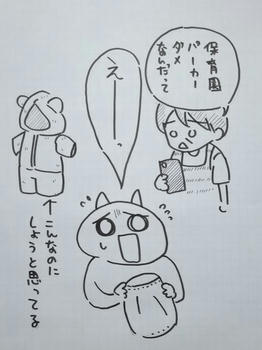 保育園
パーカー
ダメ
なんだって
えーーっ
↑こんなのに
しようと思ってる